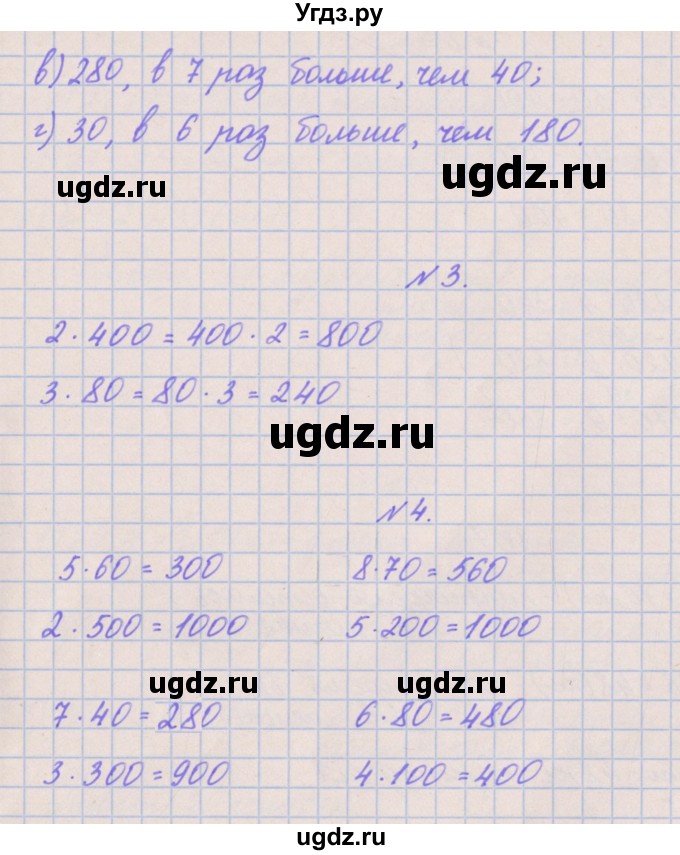 Угдз.ру
в) 280, в 7 раз больше, чем 40;
г) 30, в 6 раз больше, чем 180.
ugdz.ru
ugdz.ru
№ 3.
2 · 400 = 400 · 2 = 800
3 · 80 = 80 · 3 = 240
ugdz.ru
№ 4.
5 · 60 = 300 8 · 70 = 560
2 · 500 = 1000 5 · 200 = 1000
ugdz.ru ugdz.ru
7 · 40 = 280 6 · 80 = 480
3 · 300 = 900 4 · 100 = 400
ugdz.ru